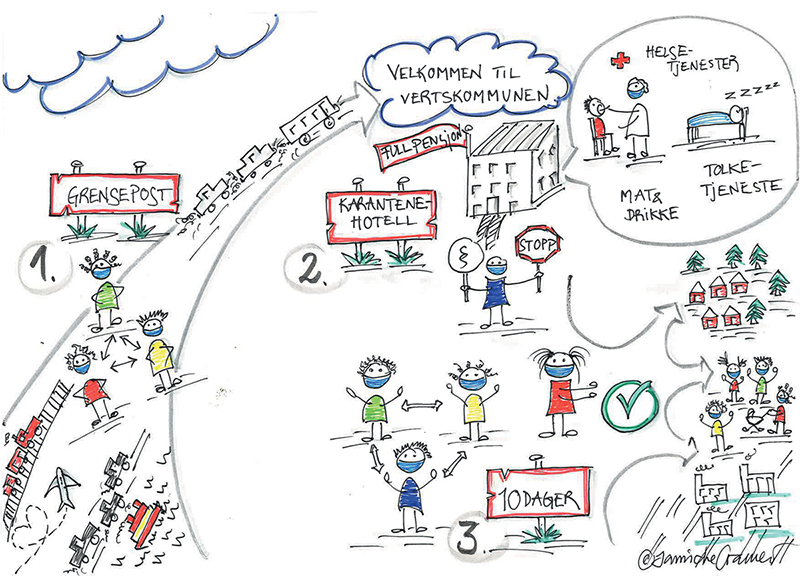 VELKOMMEN TIL
VERTSKOMMUNEN
HELSE-
TJENESTER
ZZZZZ
TOLKE-
TJENESTE
MAT&
DRIKKE
FULLPENSJON
GRENSEPOST
KARANTENE-
HOTELL
1.
2.
§
STOPP
10 DAGER
3.